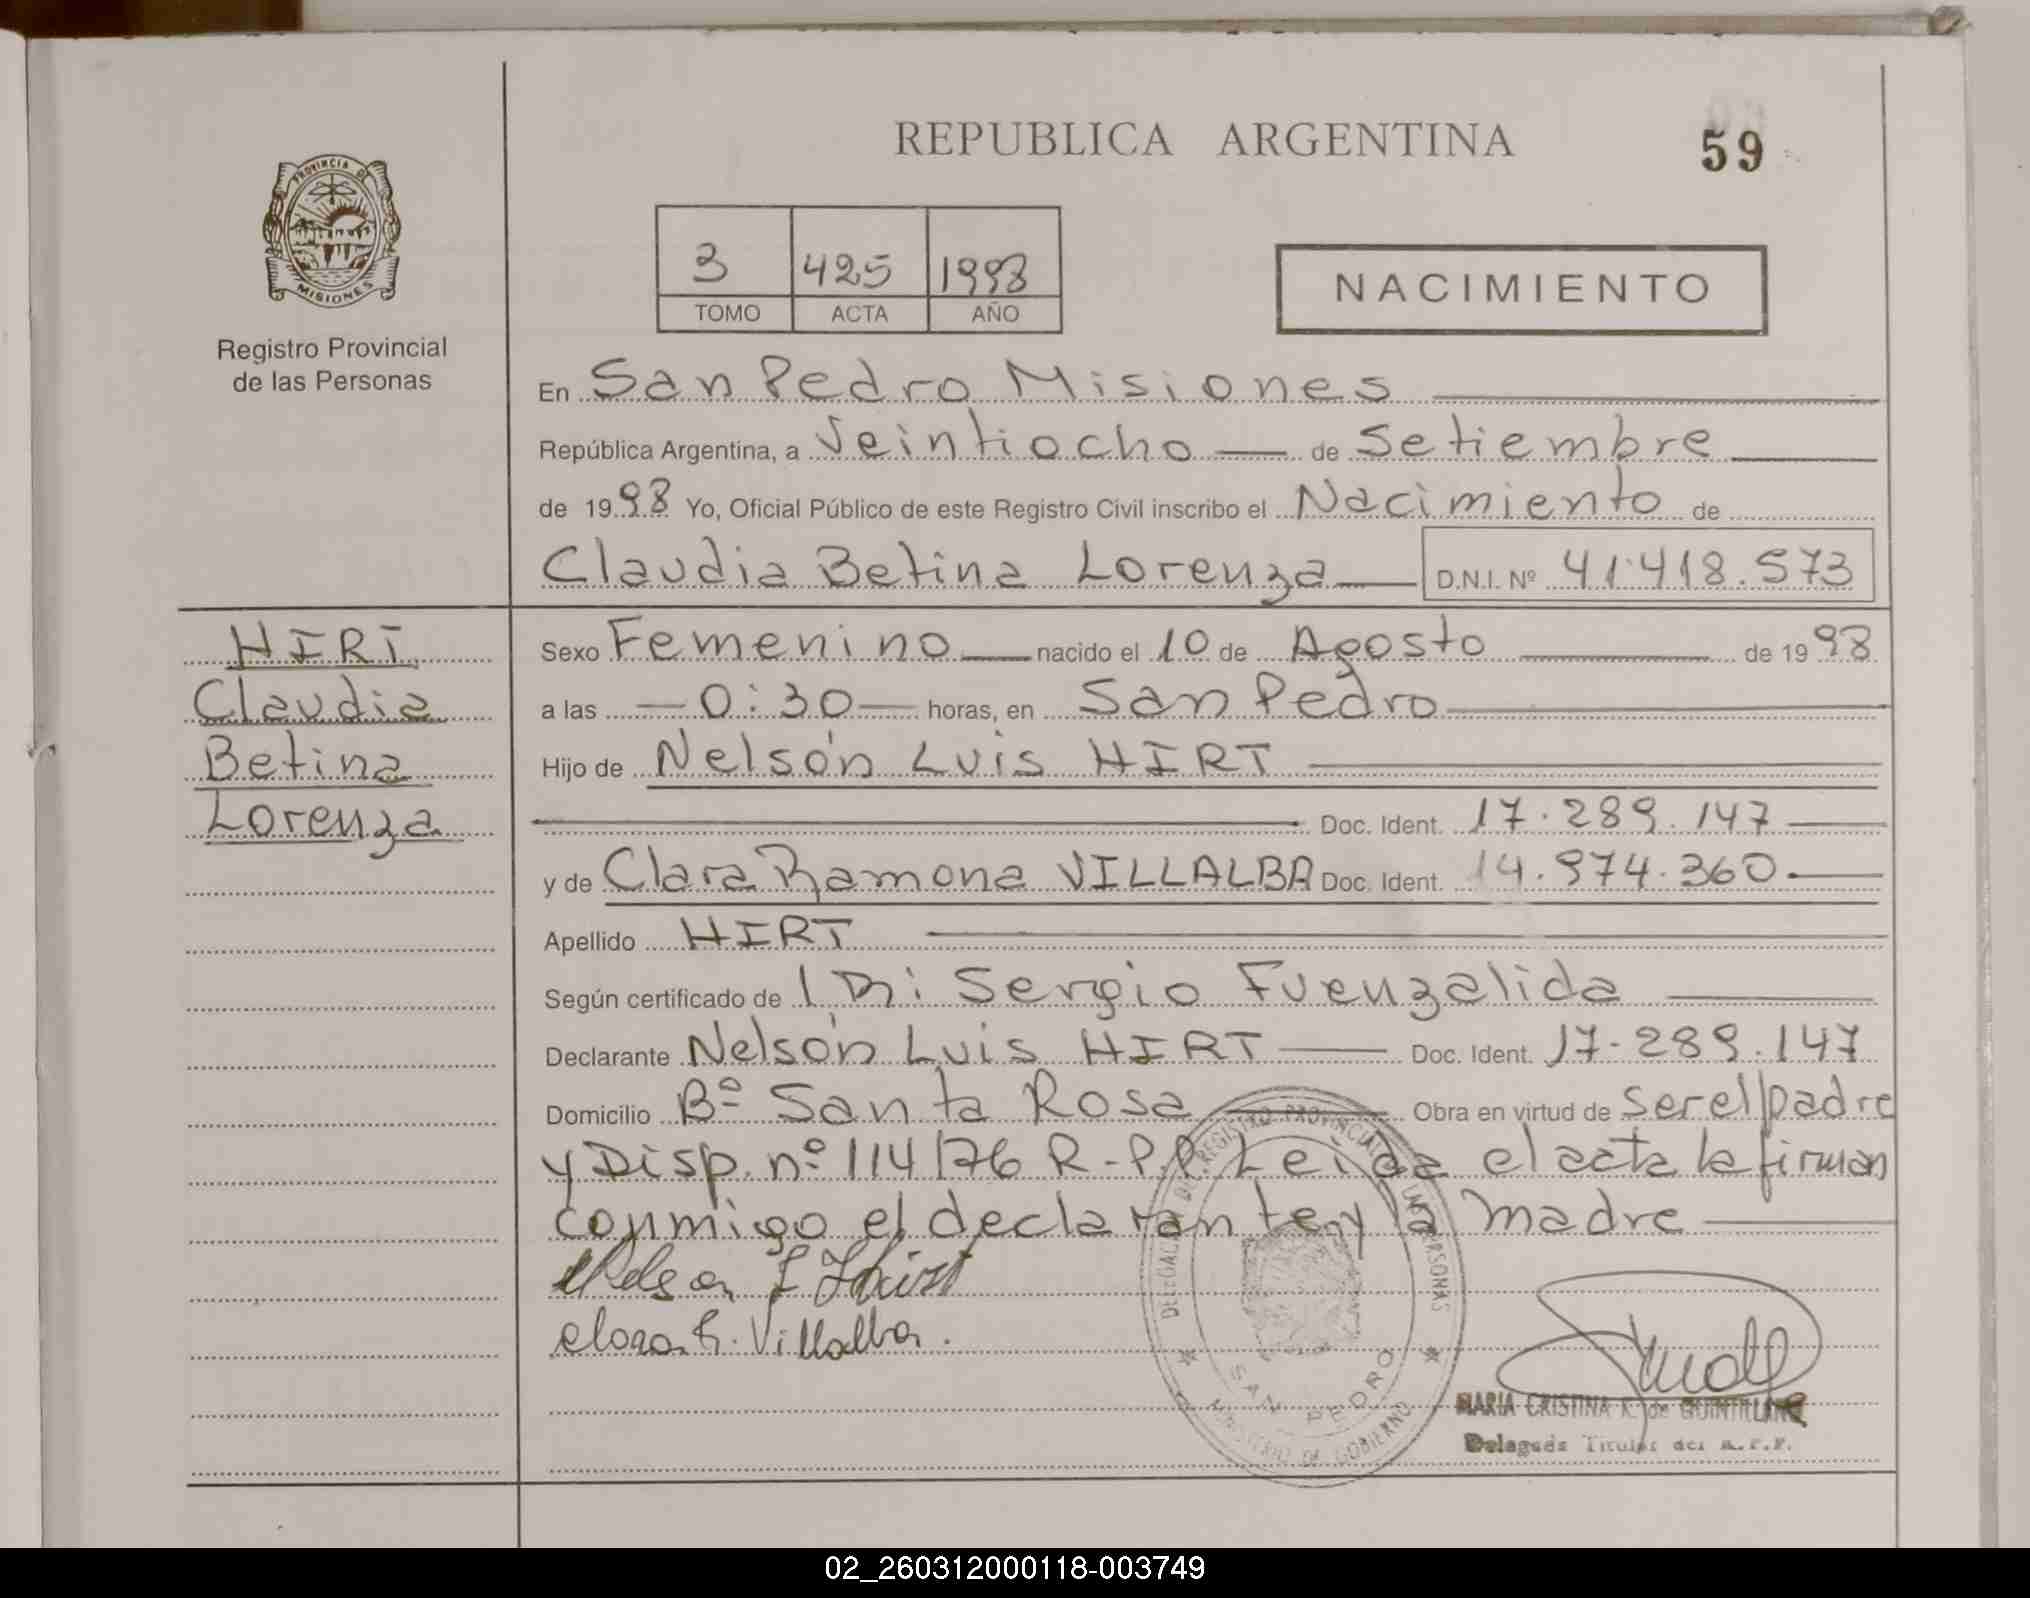 REPUBLICA ARGENTINA
59
PROVINCIA DE
MISIONES
Registro Provincial
de las Personas
3 425 1998
TOMO ACTA AÑO
NACIMIENTO
En San Pedro Misiones
República Argentina, a Veintiocho de Setiembre
de 1998 Yo, Oficial Público de este Registro Civil inscribo el Nacimiento de
Claudia Betina Lorenza D.N.I. Nº 41.418.573
HIRT
Claudia
Betina
Lorenza
Sexo Femenino nacido el 10 de Agosto de 1998
a las 0:30 horas, en San Pedro
Hijo de Nelsón Luis HIRT
Doc. Ident. 17.289.147
y de Clara Ramona VILLALBA Doc. Ident. 14.974.360
Apellido HIRT
Según certificado de Sergio Fuenzalida
Declarante Nelsón Luis HIRT Doc. Ident. 17.289.147
Domicilio Bº Santa Rosa Obra en virtud de ser el padre
y Disp. nº 114/76 R.P.P. Leida el acta la firman
conmigo el declarante y la madre
Nelson L Hirt
Clara R. Villalba.
DELEGACION DEL REGISTRO PROVINCIAL DE LAS PERSONAS
SAN PEDRO
MINISTERIO DE GOBIERNO
MARIA CRISTINA K. de QUINTILLAN
Delegada Titular del R.P.P.
02_260312000118-003749